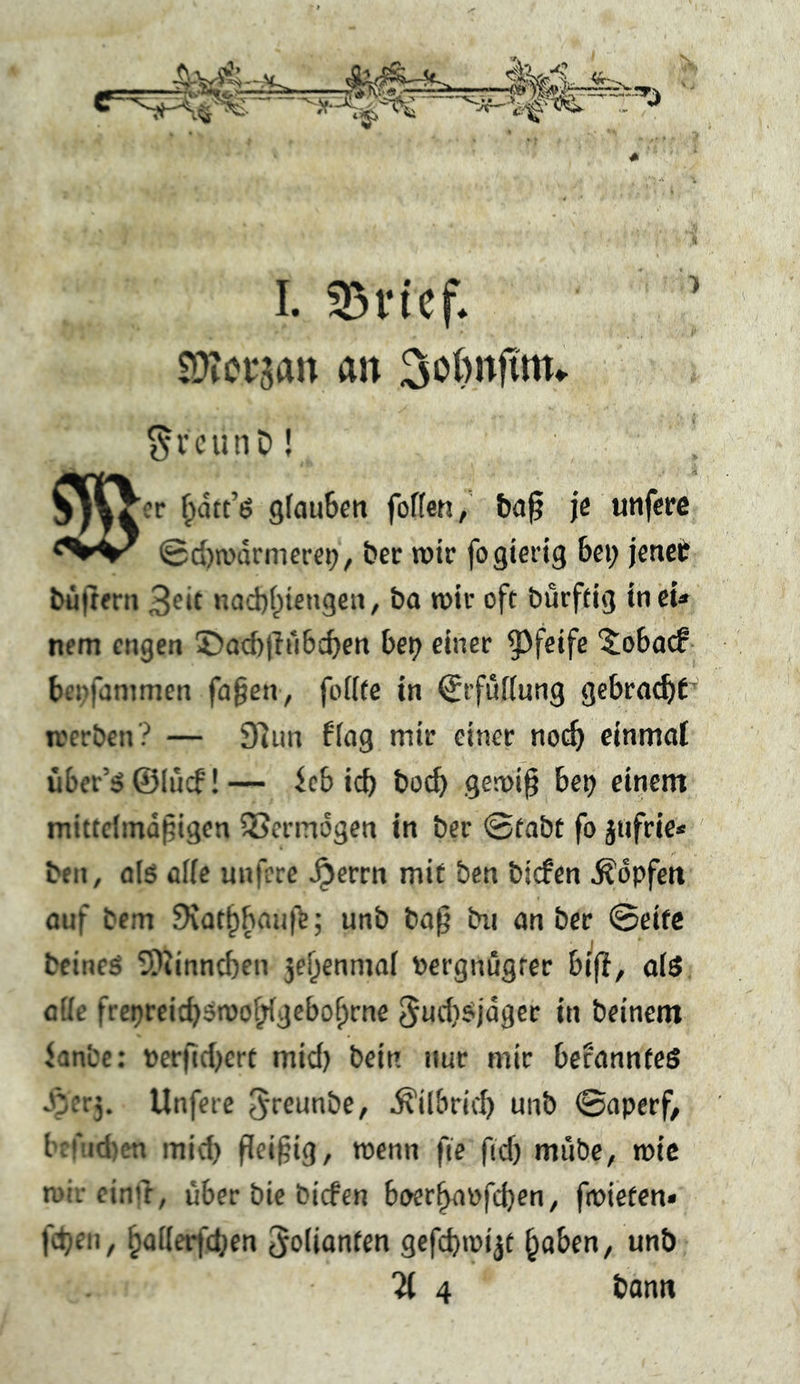 I. Brief.
Morzan an Johnſtm.
Freund!
Wer hätt's glauben ſollen, daß je unſere
Schwärmerey, der wir ſo gierig bey jener
düſtern Zeit nachhiengen, da wir oft dürftig in ei-
nem engen Dachſtübchen bey einer Pfeife Toback
beyſammen ſaßen, ſollte in Erfüllung gebracht
werden? — Nun klag mir einer noch einmal
über's Glück! — Leb ich doch gewiß bey einem
mittelmäßigen Vermögen in der Stadt ſo zufrie-
den, als alle unſere Herrn mit den dicken Köpfen
auf dem Rathhauſe; und daß du an der Seite
deines Minnchen zehenmal vergnügter biſt, als
alle freyreichswohlgebohrne Fuchsjäger in deinem
Lande: verſichert mich dein nur mir bekanntes
Herz. Unſere Freunde, Kilbrich und Saperf,
beſuchen mich fleißig, wenn ſie ſich müde, wie
wir einſt, über die dicken boerhavſchen, ſwieten-
ſchen, hallerſchen Folianten geſchwizt haben, und
A 4 dann